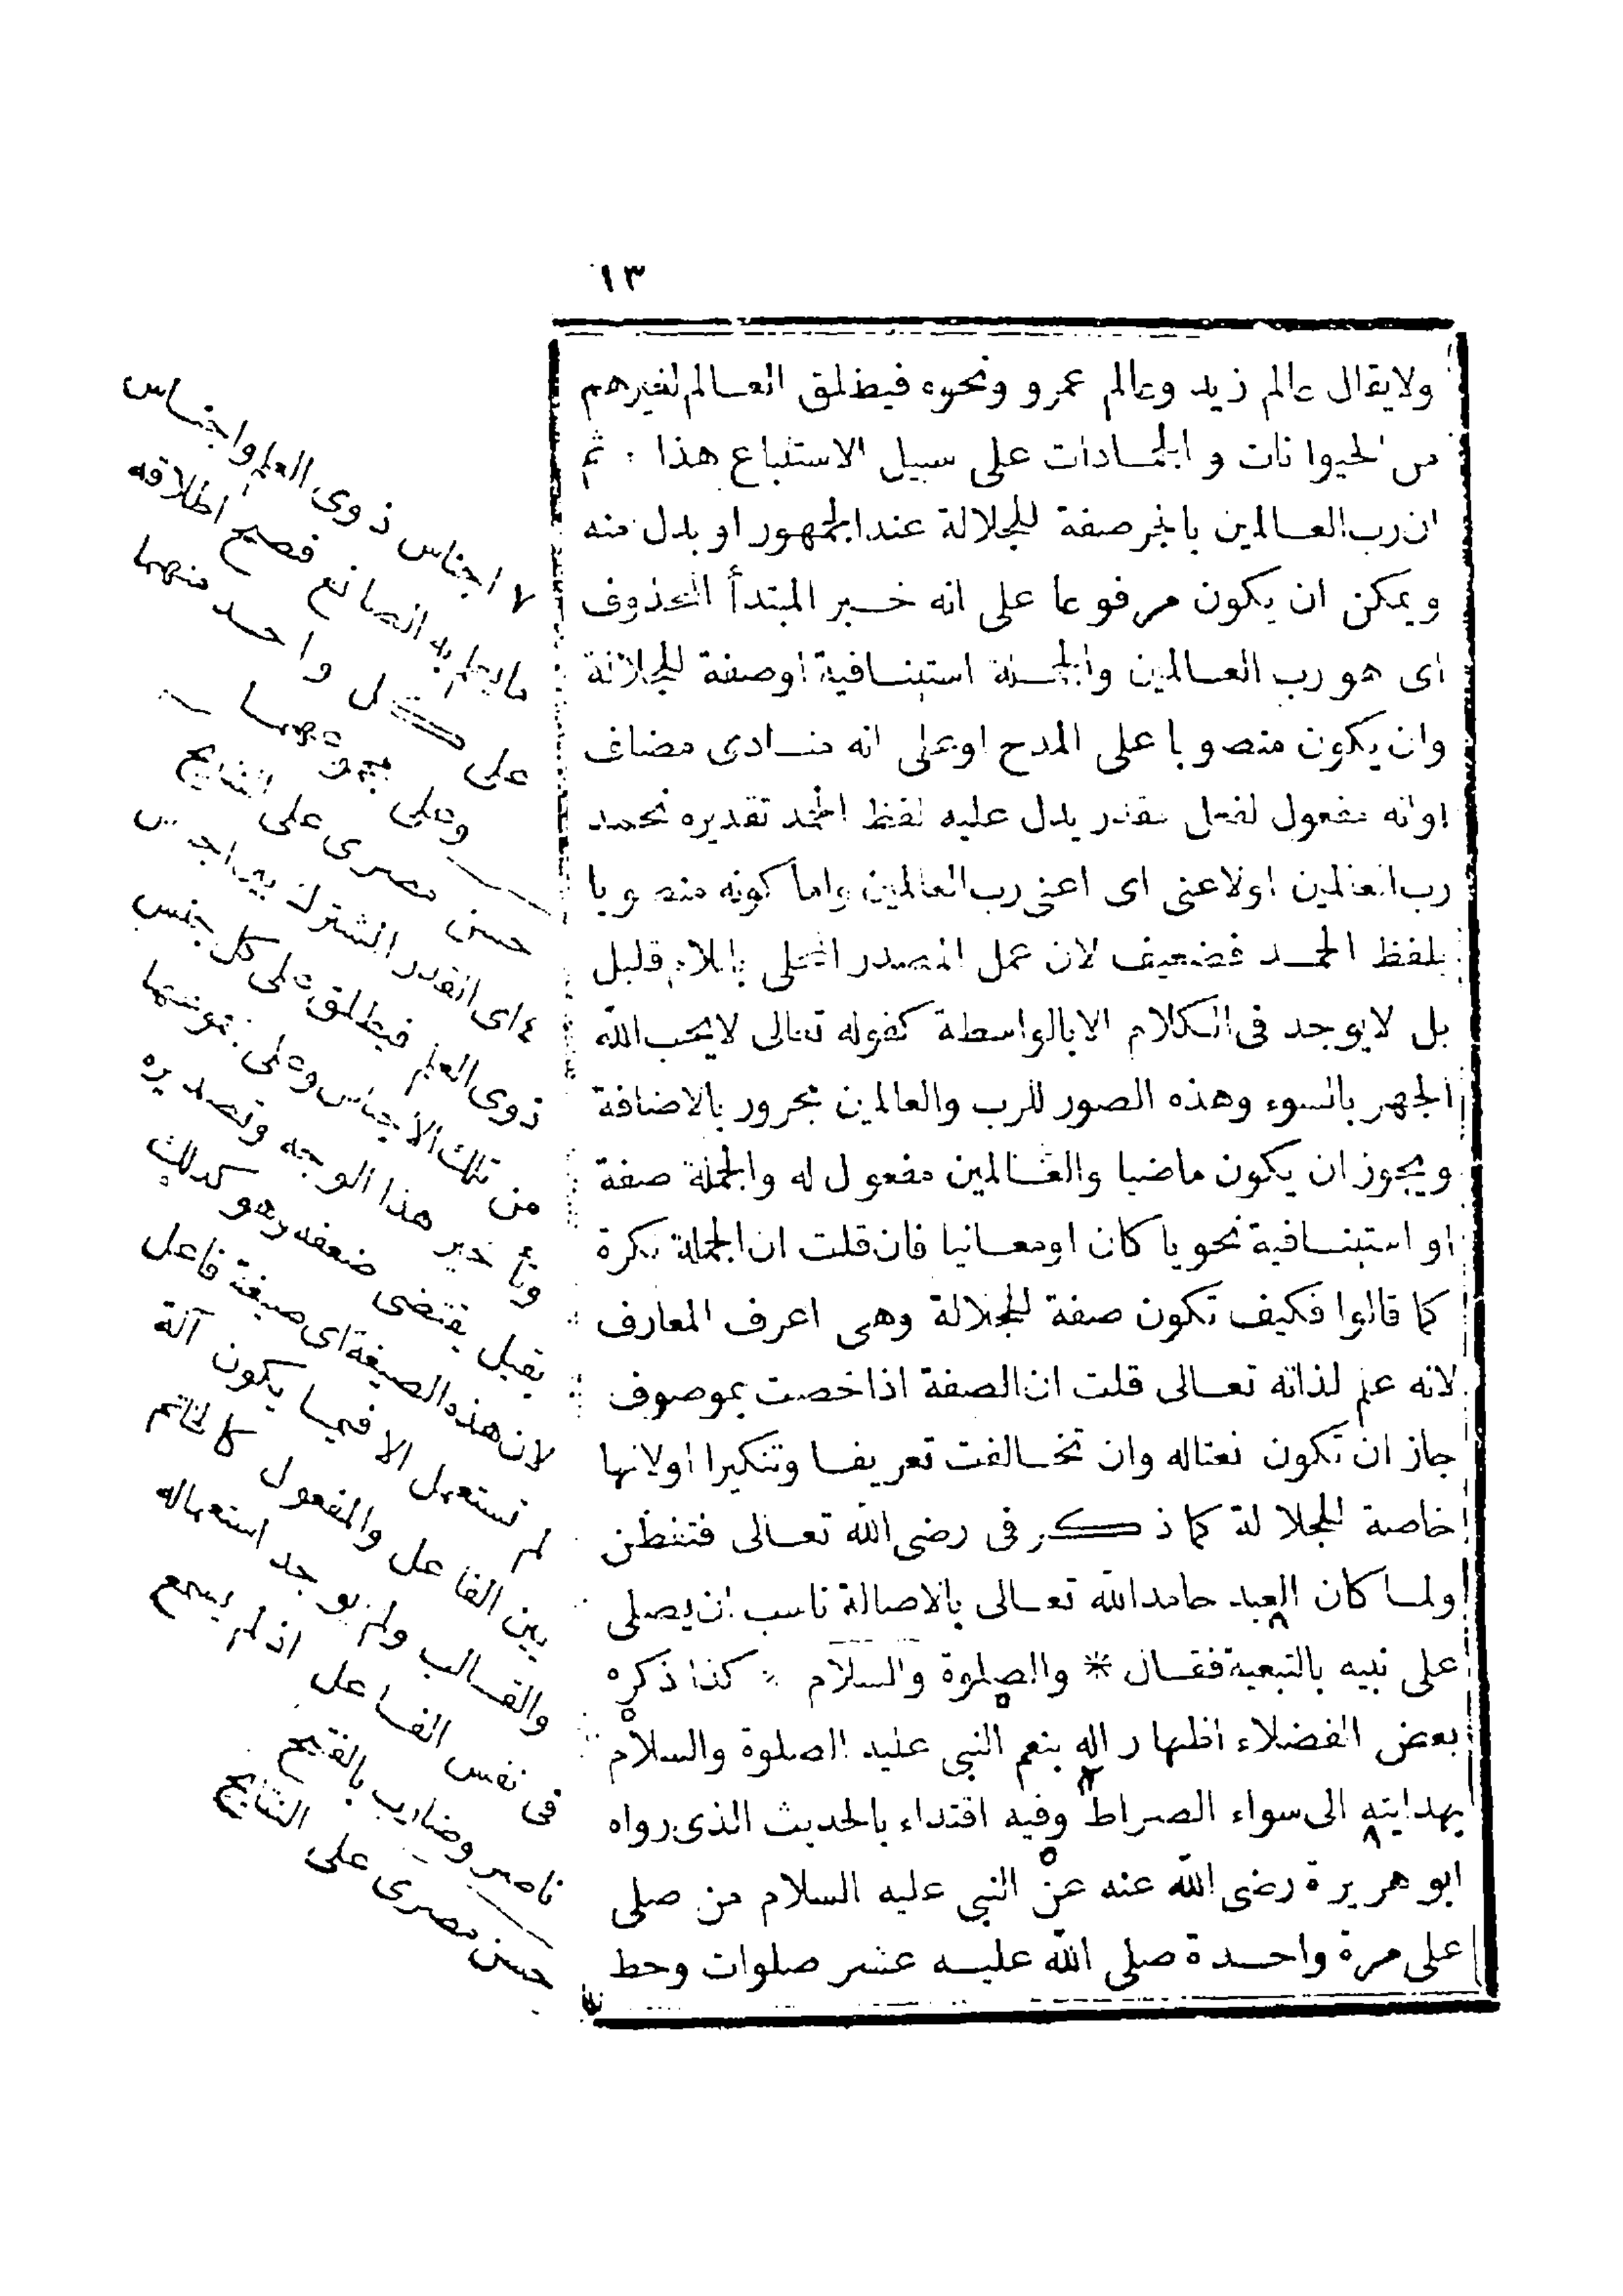 ١٣
ولايقال عالم زيد وعالم عمرو ونحوه فيطلق العالم لغيرهم
من الحيوانات والجمادات على سبيل الاستتباع هذا ثم
ان رب العالمين بالجر صفة للجلالة عند الجمهور او بدل منه
ويمكن ان يكون مرفوعا على انه خبر المبتدأ المحذوف
اى هو رب العالمين والجملة استينافية اوصفة للجلالة
وان يكون منصوبا على المدح اوعلى انه منادى مضاف
اوانه مفعول لفعل مقدر يدل عليه لفظ الحمد تقديره نحمد
رب العالمين اولاعنى اى اعنى رب العالمين واما كونه منصوبا
بلفظ الحمد فضعيف لان عمل المصدر المحلى باللام قليل
بل لايوجد فى الكلام الابالواسطة كقوله تعالى لايحب الله
الجهر بالسوء وهذه الصور للرب والعالمين مجرور بالاضافة
ويجوز ان يكون ماضيا والعالمين مفعول له والجملة صفة
او استينافية نحويا كان اومعانيا فان قلت ان الجملة نكرة
كما قالوا فكيف تكون صفة للجلالة وهى اعرف المعارف
لانه علم لذاته تعالى قلت ان الصفة اذا خصت بموصوف
جاز ان تكون نعتاله وان تخالفت تعريفا وتنكيرا اولانها
خاصة للجلالة كما ذكر فى رضى الله تعالى فتفطن
ولما كان العبد حامدالله تعالى بالاصالة ناسب ان يصلى
على نبيه بالتبعية فقال * والصلوة والسلام * كذا ذكره
بعض الفضلاء اظهار اله بنعم النبى عليه الصلوة والسلام
بهدايته الى سواء الصراط وفيه اقتداء بالحديث الذى رواه
ابو هريرة رضى الله عنه عن النبى عليه السلام من صلى
على مرة واحدة صلى الله عليه عشر صلوات وحط
٧ اجناس ذوى العلم واجناس
مايعلم به الصانع فصح اطلاقه
على كل واحد منهما
وعلى مجموعهما
حسن مصرى على النتايج
٤ اى القدر المشترك بين اجناس
ذوى العلم فيطلق على كل جنس
من تلك الاجناس وعلى مجموعها
وتأخير هذا الوجه وتصديره
بقيل يقتضى ضعفه وهو كذلك
لان هذه الصيغة اى صيغة فاعل
لم تستعمل الا فيما يكون آلة
بين الفاعل والمفعول كالخاتم
والقالب ولم يوجد استعماله
فى نفس الفاعل اذ لم يسمع
ناصر وضارب بالفتح
حسن مصرى على النتايج